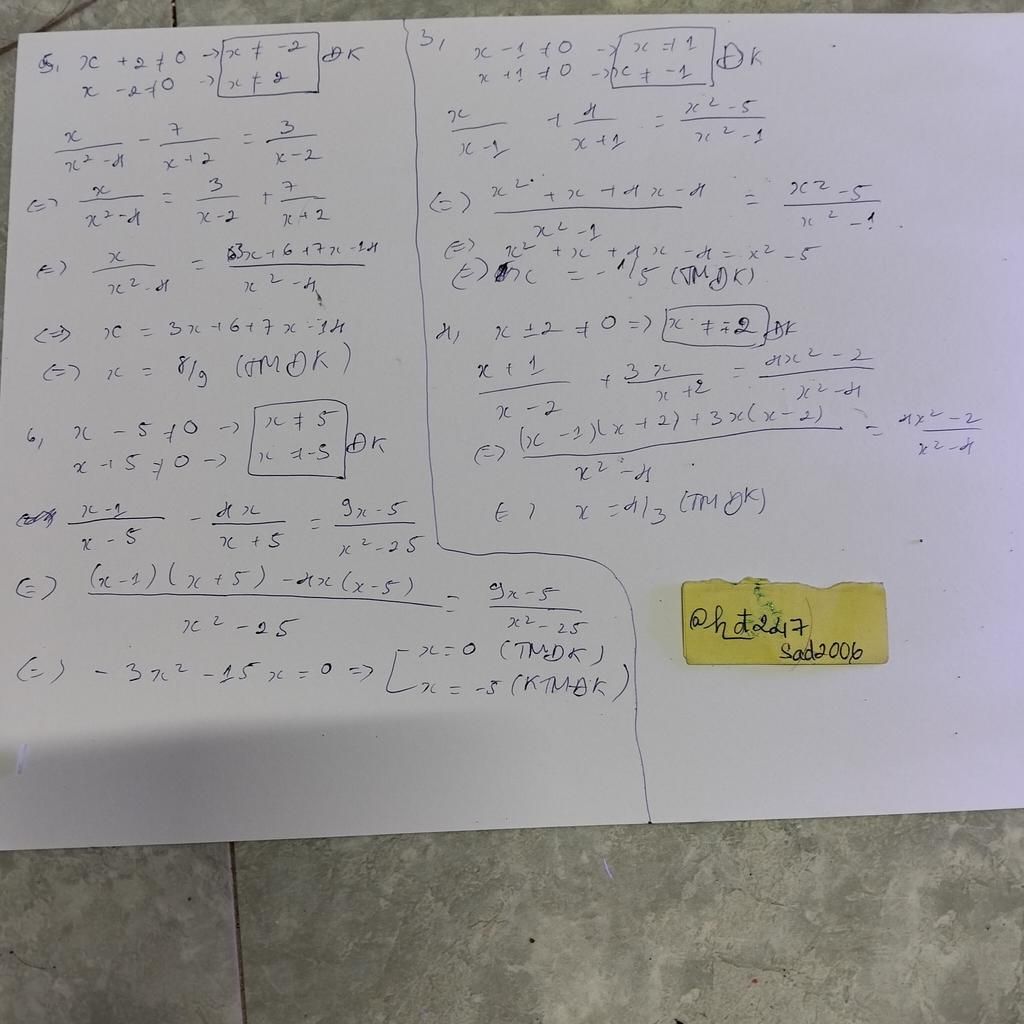 5, x + 2 ≠ 0 → x ≠ -2 ĐK
x - 2 ≠ 0 → x ≠ 2
x/(x² - 4) - 7/(x + 2) = 3/(x - 2)
(=) x/(x² - 4) = 3/(x - 2) + 7/(x + 2)
(=) x/(x² - 4) = (3x + 6 + 7x - 14)/(x² - 4)
(=) x = 3x + 6 + 7x - 14
(=) x = 8/9 (TMĐK)
6, x - 5 ≠ 0 → x ≠ 5 ĐK
x + 5 ≠ 0 → x ≠ -5
(x - 1)/(x - 5) - 4x/(x + 5) = (9x - 5)/(x² - 25)
(=) ((x - 1)(x + 5) - 4x(x - 5))/(x² - 25) = (9x - 5)/(x² - 25)
(=) - 3x² - 15x = 0 => [ x = 0 (TMĐK)
x = -5 (KTMĐK)
3, x - 1 ≠ 0 → x ≠ 1 ĐK
x + 1 ≠ 0 → x ≠ -1
x/(x - 1) + 4/(x + 1) = (x² - 5)/(x² - 1)
(=) (x² + x + 4x - 4)/(x² - 1) = (x² - 5)/(x² - 1)
(=) x² + x + 4x - 4 = x² - 5
(=) x = -1/5 (TMĐK)
4, x ± 2 ≠ 0 => x ≠ ∓2 ĐK
(x + 1)/(x - 2) + 3x/(x + 2) = (4x² - 2)/(x² - 4)
(=) ((x - 1)(x + 2) + 3x(x - 2))/(x² - 4) = (4x² - 2)/(x² - 4)
(=) x = 4/3 (TMĐK)
@hdt247
sad2006